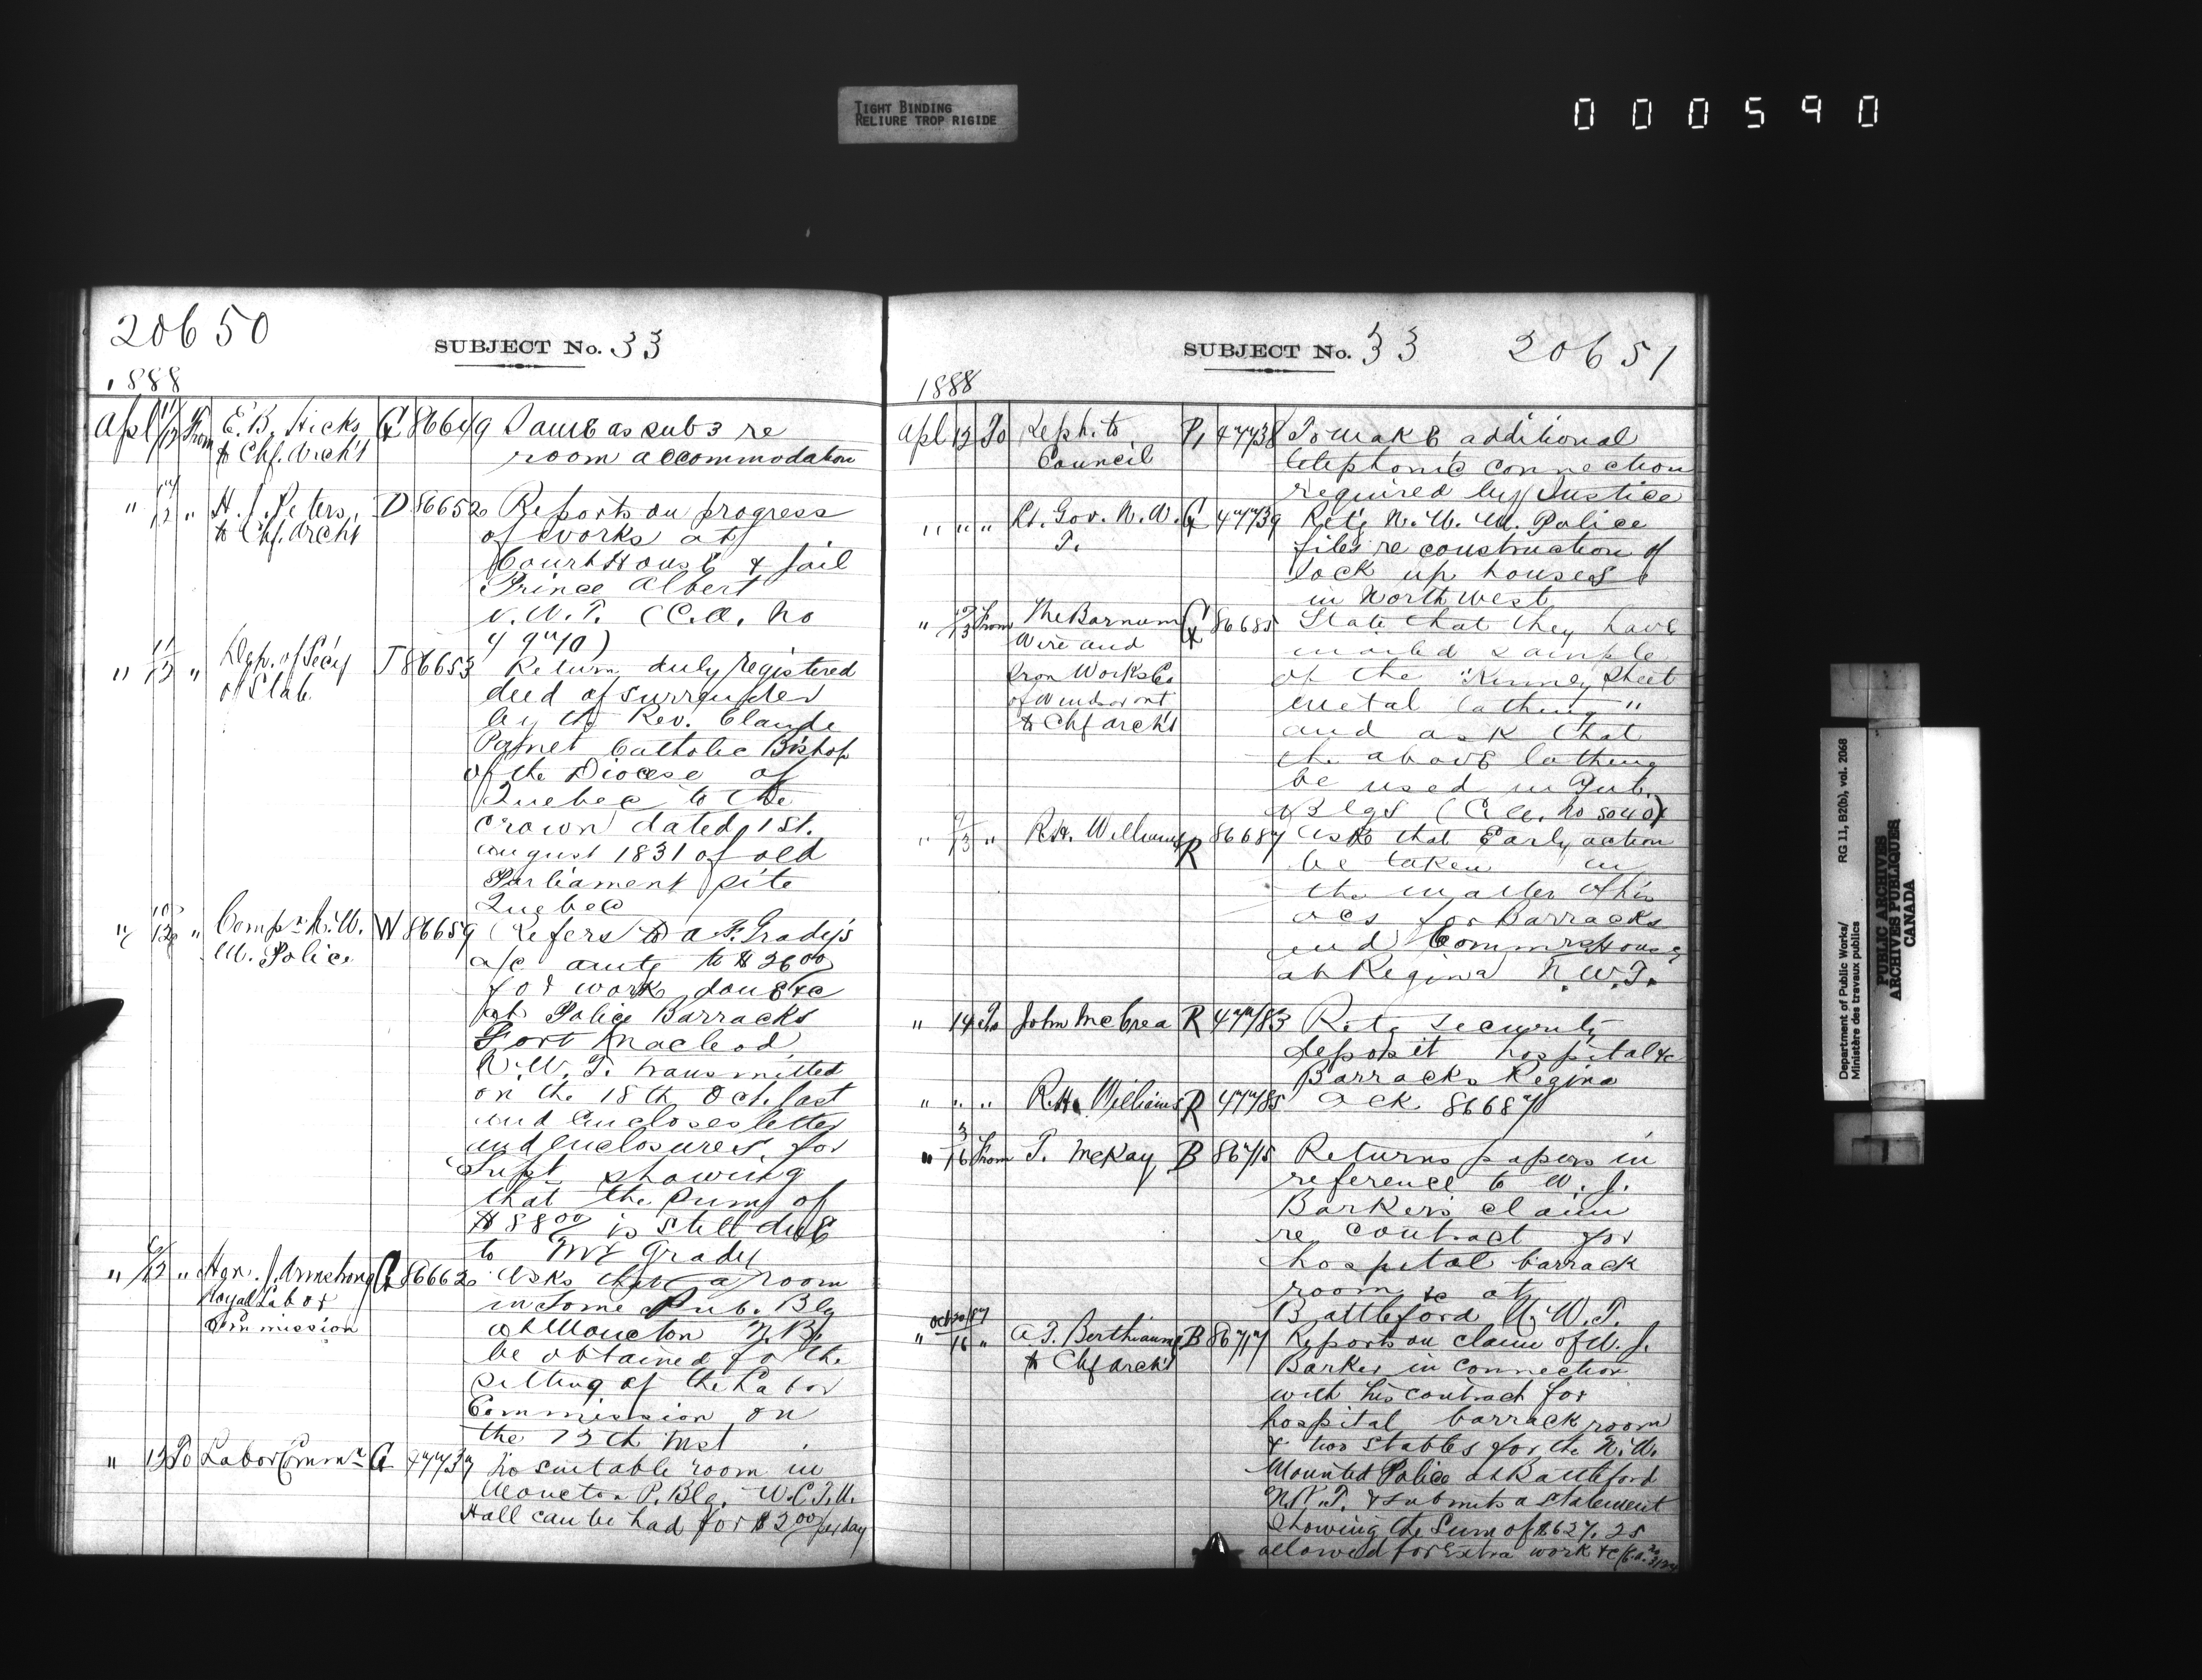 TIGHT BINDING
RELIURE TROP RIGIDE
000590
20650
SUBJECT No. 33
1888
Apl 11/12 From E. B. Hicks G 86649 Same as sub 3 re
to Chf. Archt room accommodation
" 12 " H. J. Peters, D 86652 Reports on progress
to Chf. Archt of works at
Court House & Jail
Prince Albert
N.W.T. (C.A. No
4970)
" 11/12 " Dep. of Secy J 86653 Return duly registered
of State deed of surrender
by the Rev. Claude
Panet Catholic Bishop
of the Diocese of
Quebec to the
Crown dated 1st.
August 1831 of old
Parliament site
Quebec
" 10/12 " Compr N.W. W 86659 Refers to A. F. Grady's
M. Police a/c amtg to $26.00
for work done &c
at Police Barracks
Fort Macleod
N.W.T. transmitted
on the 18th Oct. last
and encloses letter
and enclosures, for
Supt showing
that the sum of
$88.00 is still due
to Mr Grady
" /12 " Hon. J. Armstrong G 86662 Asks that a room
Royal Labor in some Pub. Blg
Commission at Moncton N.B.
be obtained for the
sitting of the Labor
Commission on
the 13th inst
" 13 To Labor Commn G 47737 No suitable room in
Moncton P. Blg. W.C.T.U.
Hall can be had for $2.00 per day
SUBJECT No. 33 20651
1888
Apl 12 To Reph. to P, 47738 To make additional
Council telephonic connection
required by Justice
" " " Lt. Gov. N.W. G 47739 Retg N.W.M. Police
T. file re construction of
lock up houses
in North west
" 12/13 From The Barnum G 86685 State that they have
Wire and mailed sample
Iron Works Co of the "Kinney Sheet
of Windsor Ont metal lathing"
to Chf Archt and ask that
the above lathing
be used in Pub.
Blgs (C.A. No 5040)
" 9/13 " R.H. Williams R 86687 Asks that early action
be taken in
the matter of his
acs for Barracks
and Commrs House
at Regina N.W.T.
" 14 To John McCrea R 47783 Retg security
deposit hospital &c
Barracks Regina
" " " R.H. Williams R 47785 Ack 86687
" 3/16 From T. McKay B 86715 Returns papers in
reference to W. J.
Barker's claim
re contract for
hospital barrack
room &c at
Battleford N.W.T.
Oct 20/87
" 16 " A.T. Berthiaume B 86717 Reports on claim of W. J.
to Chf Archt Barker in connection
with his contract for
hospital barrack room
& two stables for the N.W.
Mounted Police at Battleford
N.W.T. & submits a statement
showing the sum of $627.25
allowed for extra work &c
Department of Public Works/
Ministère des travaux publics
RG 11, B2(b), vol. 2068
PUBLIC ARCHIVES
ARCHIVES PUBLIQUES
CANADA